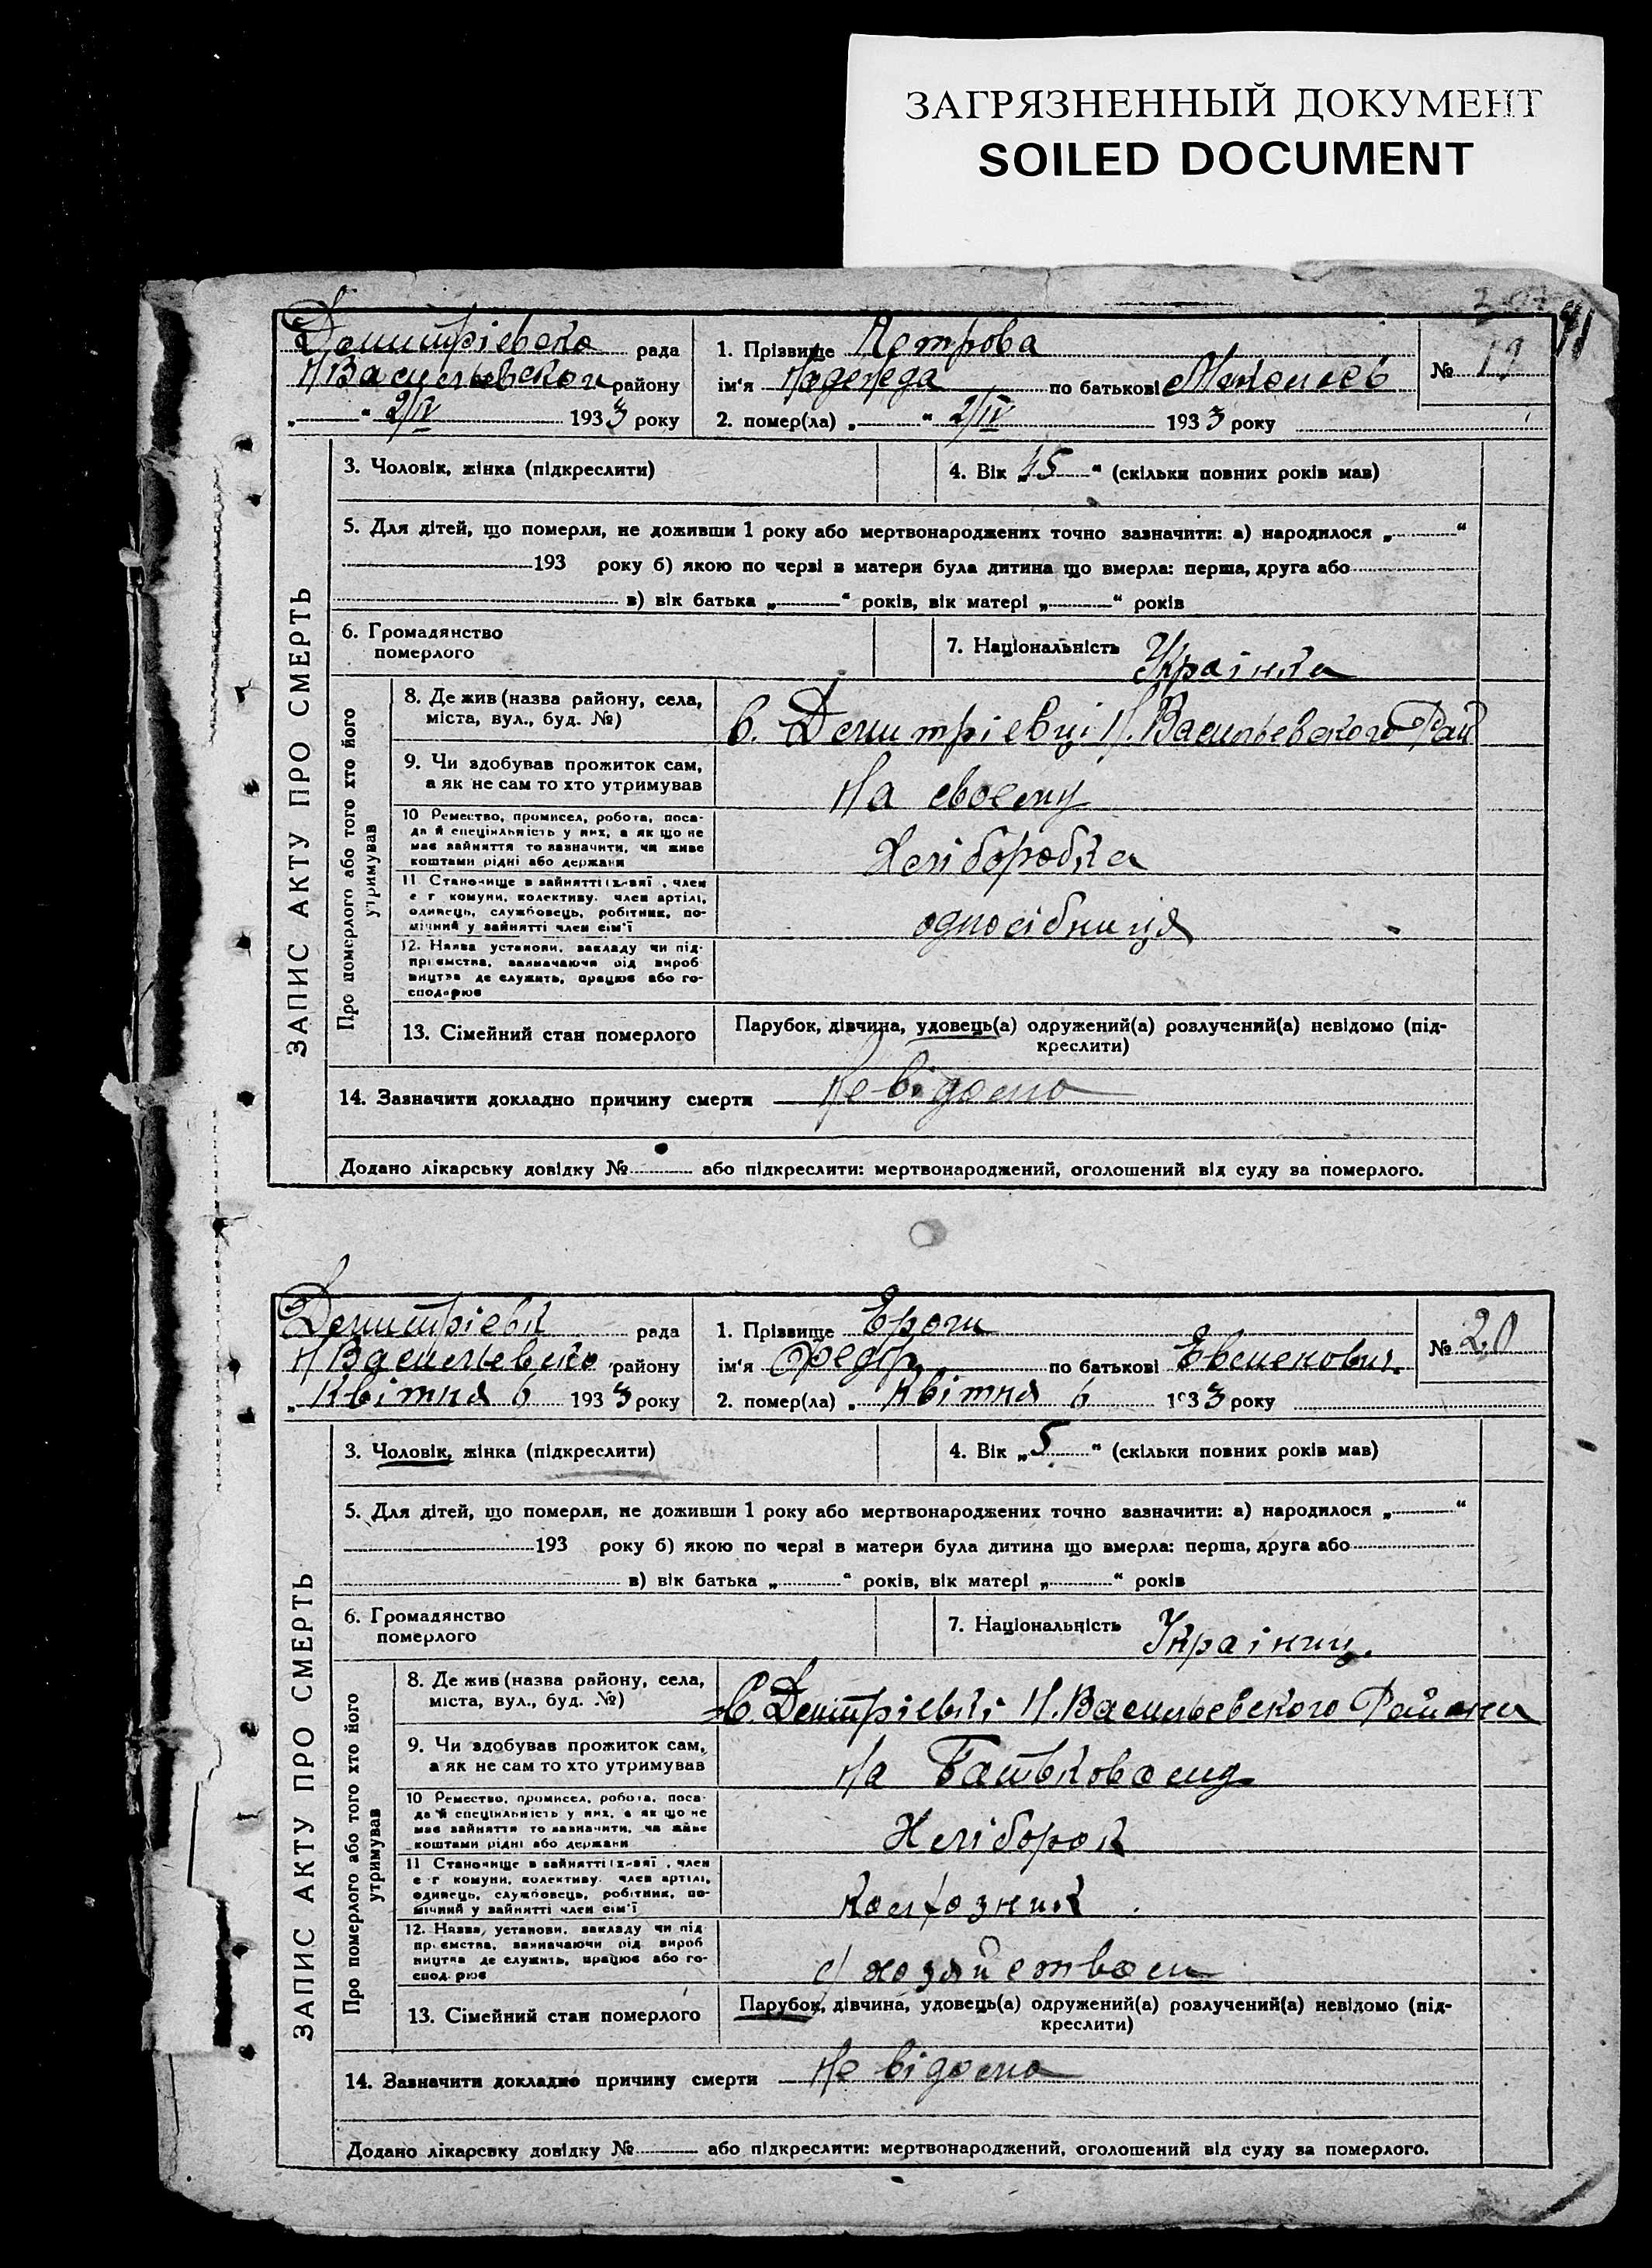 ЗАГРЯЗНЕННЫЙ ДОКУМЕНТ
SOILED DOCUMENT
ЗАПИС АКТУ ПРО СМЕРТЬ
Демитрієвска рада
Н Васильевскои району
„ “ 2/IV 1933 року
1. Прізвище Петрова
ім'я Надежда по батькові
№ 19
2. помер(ла) „ “ 2/IV 1933 року
3. Чоловік, жінка (підкреслити)
4. Вік „45“ (скільки повних років мав)
5. Для дітей, що померли, не доживши 1 року або мертвонароджених точно зазначити: а) народилося „ “
193 року б) якою по черзі в матери була дитина що вмерла: перша, друга або
в) вік батька „ “ років, вік матері „ “ років
6. Громадянство
померлого
7. Національність Українка
Про померлого або того хто його
утримував
8. Де жив (назва району, села,
міста, вул., буд. №)
в. Демитрієвці Н. Васильевского Рай
9. Чи здобував прожиток сам,
а як не сам то хто утримував
На своему
10 Ремество, промисел, робота, поса-
да й спеціяльність у них, а як що не
має зайняття то зазначити, чи живе
коштами рідні або держави
Хліборобка
11 Становище в зайнятті (хазяї, член
с г комуни, колективу, член артілі,
одинець, службовець, робітник, по-
мічний у зайнятті член сім'ї
односібниця
12. Назва установи, закладу чи під-
приємства, зазначаючи рід вироб
ництва де служить, працює або го-
сподарює
13. Сімейний стан померлого
Парубок, дівчина, удовець(а) одружений(а) розлучений(а) невідомо (під-
креслити)
14. Зазначити докладно причину смерти Не відомо
Додано лікарську довідку № або підкреслити: мертвонароджений, оголошений від суду за померлого.
ЗАПИС АКТУ ПРО СМЕРТЬ
Демитрієвк рада
Н Васильевско району
„ Квітня 6 1933 року
1. Прізвище
ім'я Федір по батькові
№ 20
2. помер(ла) „ Квітня 6 1933 року
3. Чоловік, жінка (підкреслити)
4. Вік „5“ (скільки повних років мав)
5. Для дітей, що померли, не доживши 1 року або мертвонароджених точно зазначити: а) народилося „ “
193 року б) якою по черзі в матери була дитина що вмерла: перша, друга або
в) вік батька „ “ років, вік матері „ “ років
6. Громадянство
померлого
7. Національність Українец.
Про померлого або того хто його
утримував
8. Де жив (назва району, села,
міста, вул., буд. №)
в. Демитрієвкі Н. Васильевского Района
9. Чи здобував прожиток сам,
а як не сам то хто утримував
На Батьковаму
10 Ремество, промисел, робота, поса-
да й спеціяльність у них, а як що не
має зайняття то зазначити, чи живе
коштами рідні або держави
Хлібороб
11 Становище в зайнятті (хазяї, член
с г комуни, колективу, член артілі,
одинець, службовець, робітник, по-
мічний у зайнятті член сім'ї
Колхозник
12. Назва, установи, закладу чи під
приємства, зазначаючи рід вироб
ництва де служить, працює або го-
сподарює
с/ хозяйством
13. Сімейний стан померлого
Парубок, дівчина, удовець(а) одружений(а) розлучений(а) невідомо (під-
креслити)
14. Зазначити докладно причину смерти Не відомо
Додано лікарську довідку № або підкреслити: мертвонароджений, оголошений від суду за померлого.